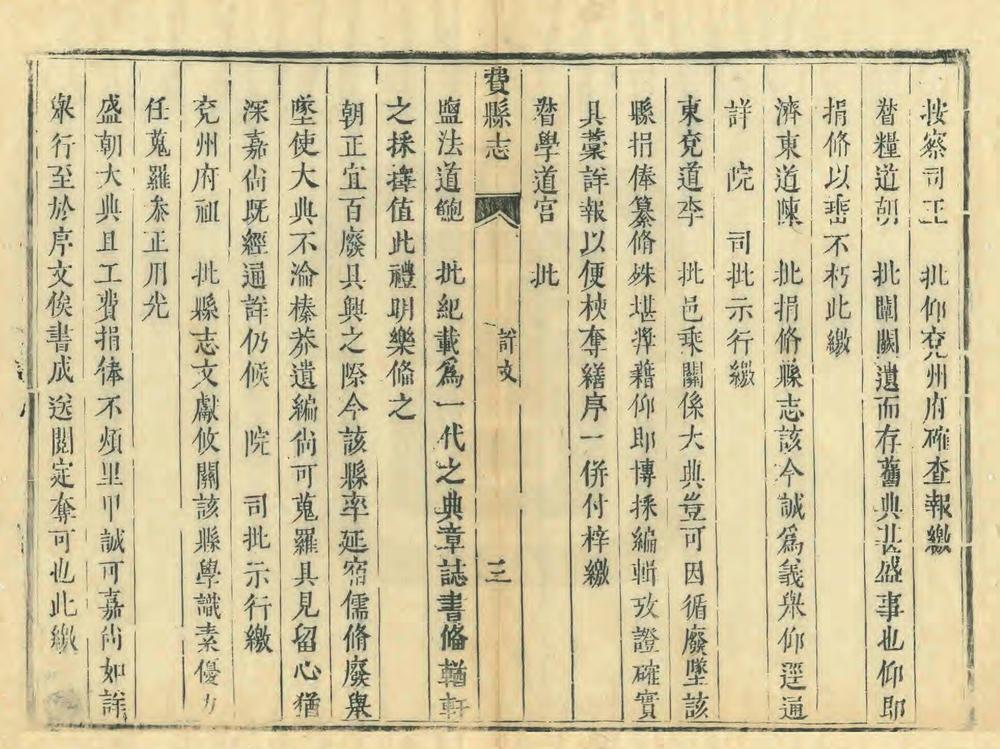 按察司王　批仰兖州府確查報繳
督糧道胡　批闡闕遺而存舊典甚盛事也仰即
捐俻以垂不朽此繳
濟東道陳　批捐俻縣志該令誠爲義舉仰逕通
詳　院　司批示行繳
東兖道李　批邑乘關係大典豈可因循廢墜該
縣捐俸纂俻殊堪奬藉仰即博採編輯攷證確實
具藁詳報以便校奪繕序一併付梓繳
督學道宫　批
費縣志　詳文　三
鹽法道鮑　批紀載爲一代之典章誌書俻輶軒
之採擇值此禮明樂俻之
朝正宜百廢具興之際今該縣率延宿儒俻廢舉
墜使大典不淪榛莽遺編尙可蒐羅具見留心猶
深嘉尙既經通詳仍候　院　司批示行繳
兖州府祖　批縣志文獻攸關該縣學識素優力
任蒐羅叅正用光
盛朝大典且工費捐俸不煩里甲誠可嘉尙如詳
舉行至於序文俟書成送閱定奪可也此繳